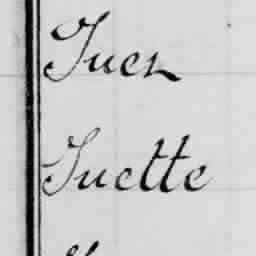 Juen
Juette